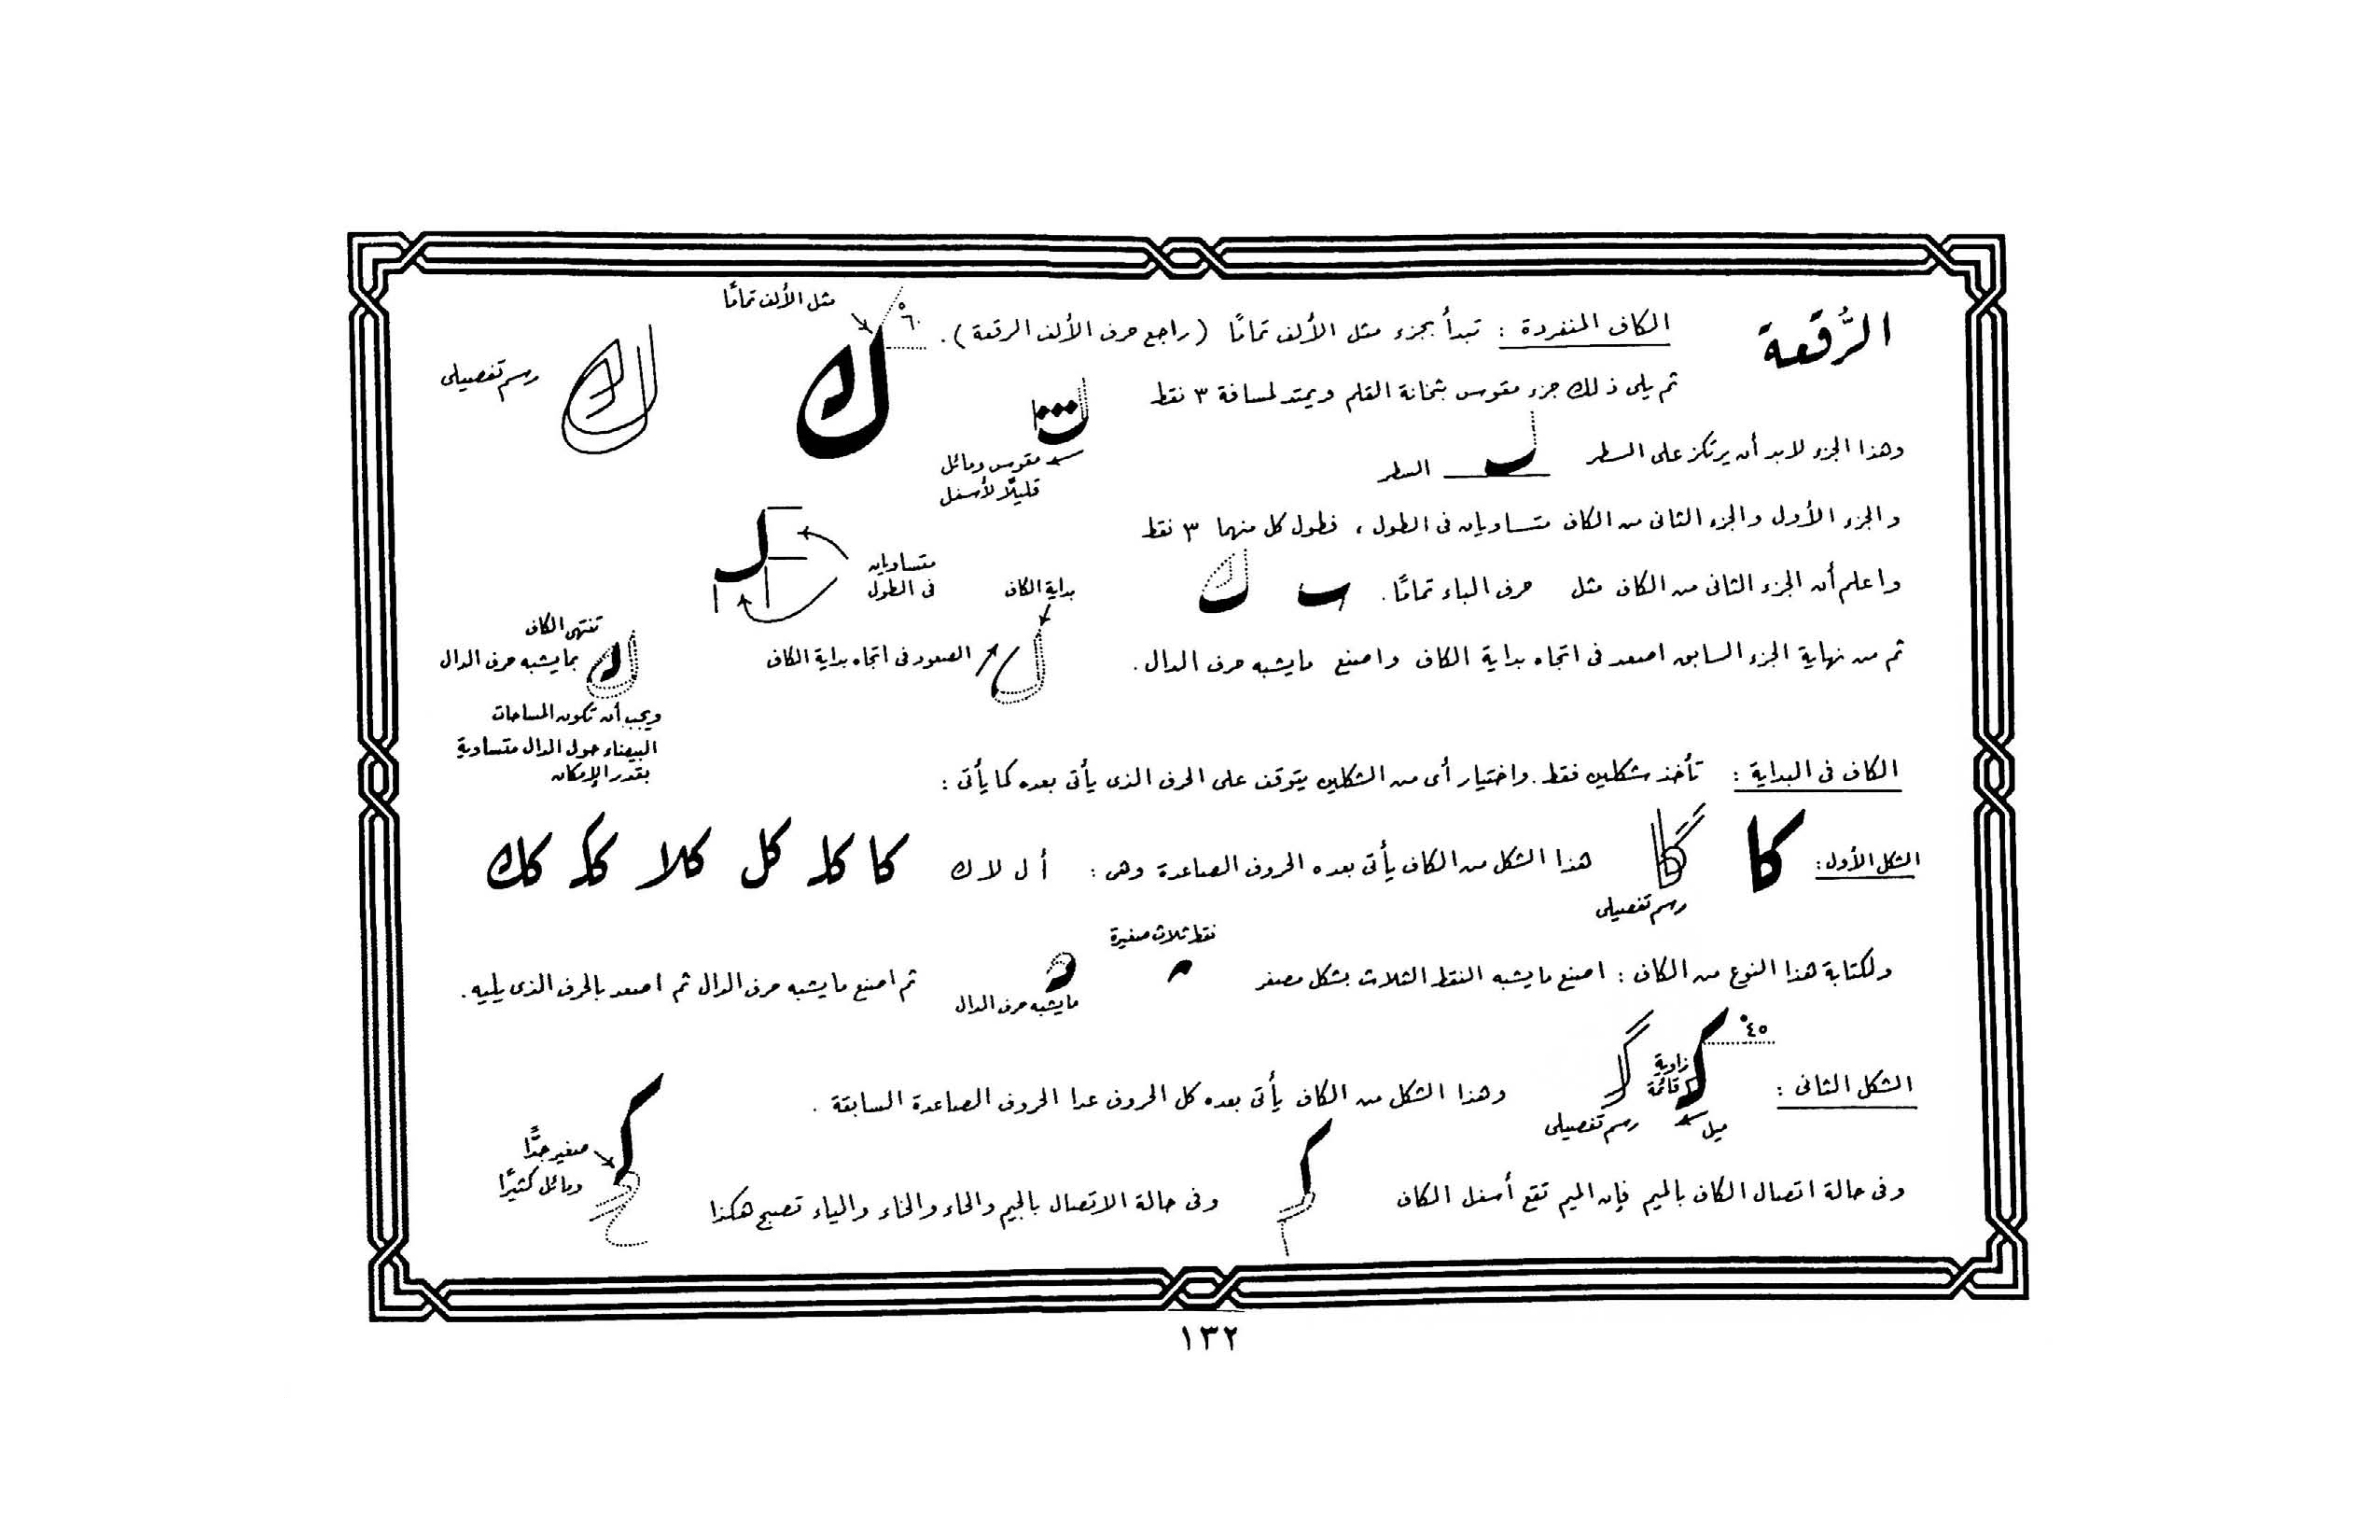 الرُّقعة
الكاف المنفردة : تبدأ بجزء مثل الألف تمامًا (راجع حرف الألف الرقعة).
مثل الألف تمامًا
٦٠°
رسم تفصيلى
ثم يلى ذلك جزء مقوس بثخانة القلم ويمتد لمسافة ٣ نقط
مقوس ومائل
قليلًا لأسفل
وهذا الجزء لابد أن يرتكز على السطر
السطر
والجزء الأول والجزء الثانى من الكاف متساويان فى الطول ، فطول كل منهما ٣ نقط
متساويان
فى الطول
واعلم أن الجزء الثانى من الكاف مثل حرف الباء تمامًا .
بداية الكاف
ثم من نهاية الجزء السابق اصعد فى اتجاه بداية الكاف واصنع مايشبه حرف الدال .
الصعود فى اتجاه بداية الكاف
تنتهى الكاف
بمايشبه حرف الدال
ويجب أن تكون المساحات
البيضاء حول الدال متساوية
بقدر الإمكان
الكاف فى البداية : تأخذ شكلين فقط . واختيار أى من الشكلين يتوقف على الحرف الذى يأتى بعده كما يأتى :
الشكل الأول : كا
رسم تفصيلى
هذا الشكل من الكاف يأتى بعده الحروف الصاعدة وهى : أ ل لا ك
كا كلـ كل كلا ككـ كك
ولكتابة هذا النوع من الكاف : اصنع مايشبه النقط الثلاث بشكل مصغر
نقط ثلاث صغيرة
مايشبه حرف الدال
ثم اصنع مايشبه حرف الدال ثم اصعد بالحرف الذى يليه .
الشكل الثانى :
٤٥°
زاوية
قائمة
ميل
رسم تفصيلى
وهذا الشكل من الكاف يأتى بعده كل الحروف عدا الحروف الصاعدة السابقة .
وفى حالة اتصال الكاف بالميم فإن الميم تقع أسفل الكاف
وفى حالة الاتصال بالجيم والحاء والخاء والياء تصبح هكذا
صغير جدًّا
ومائل كثيرًا
١٣٢